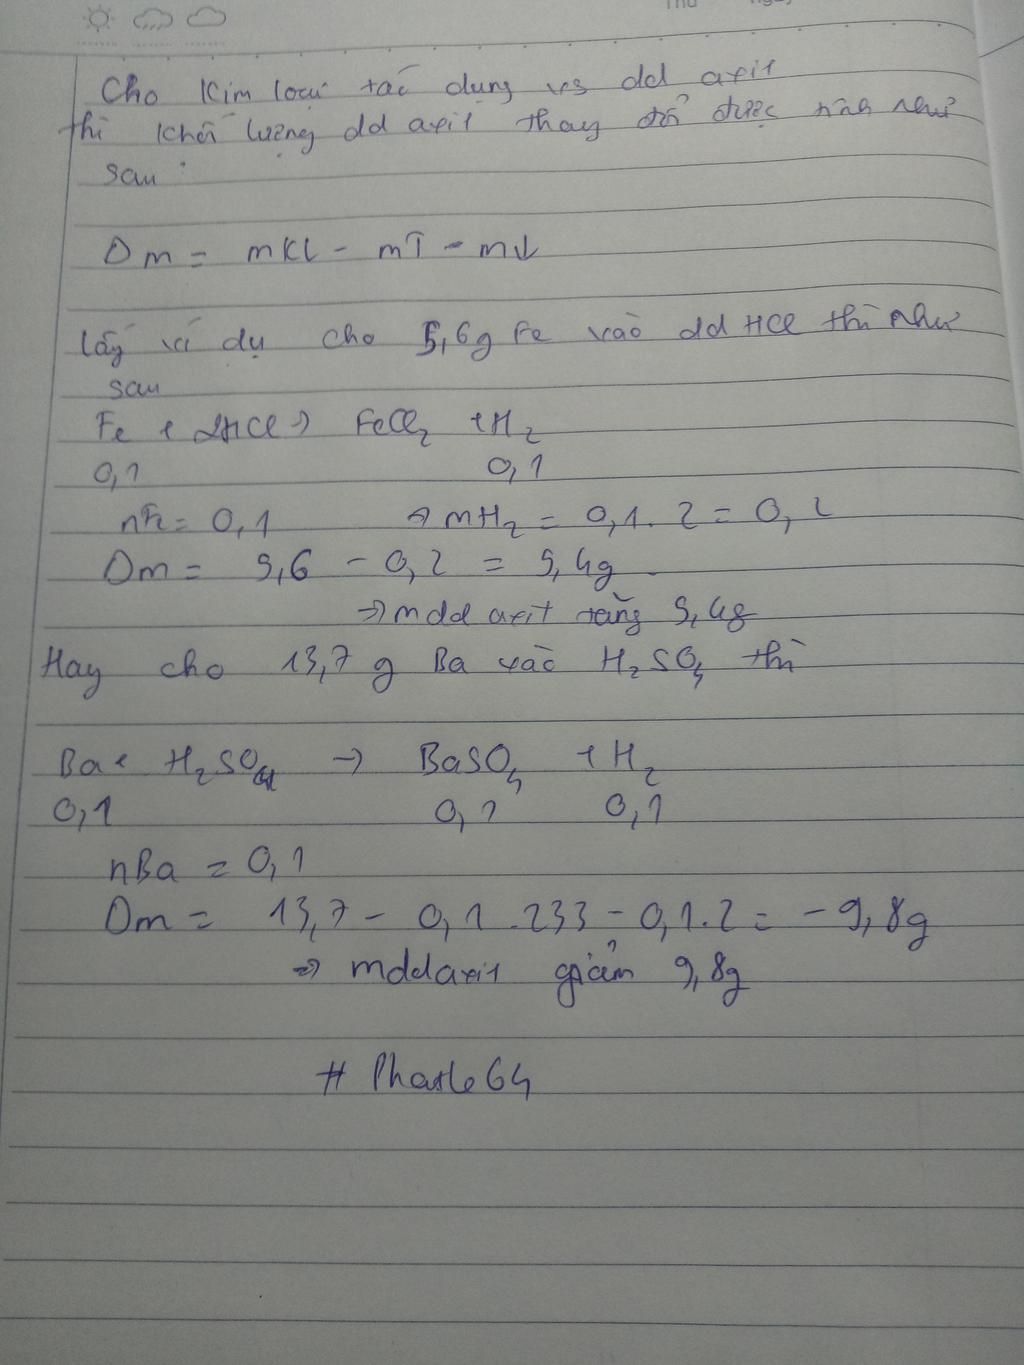 Thứ
Ngày
Cho kim loại tác dụng vs dd axit
thì khối lượng dd axit thay đổi được tính như
sau :
Δm = mKL - m↑ - m↓
Lấy ví dụ cho 5,6g Fe vào dd HCl thì như
sau
Fe + 2HCl → FeCl₂ + H₂
0,1 0,1
nFe = 0,1 → mH₂ = 0,1.2 = 0,2
Δm = 5,6 - 0,2 = 5,4g
→ mdd axit tăng 5,4g
Hay cho 13,7 g Ba vào H₂SO₄ thì
Ba + H₂SO₄ → BaSO₄ + H₂
0,1 0,1 0,1
nBa = 0,1
Δm = 13,7 - 0,1.233 - 0,1.2 = -9,8g
→ mdd axit giảm 9,8g